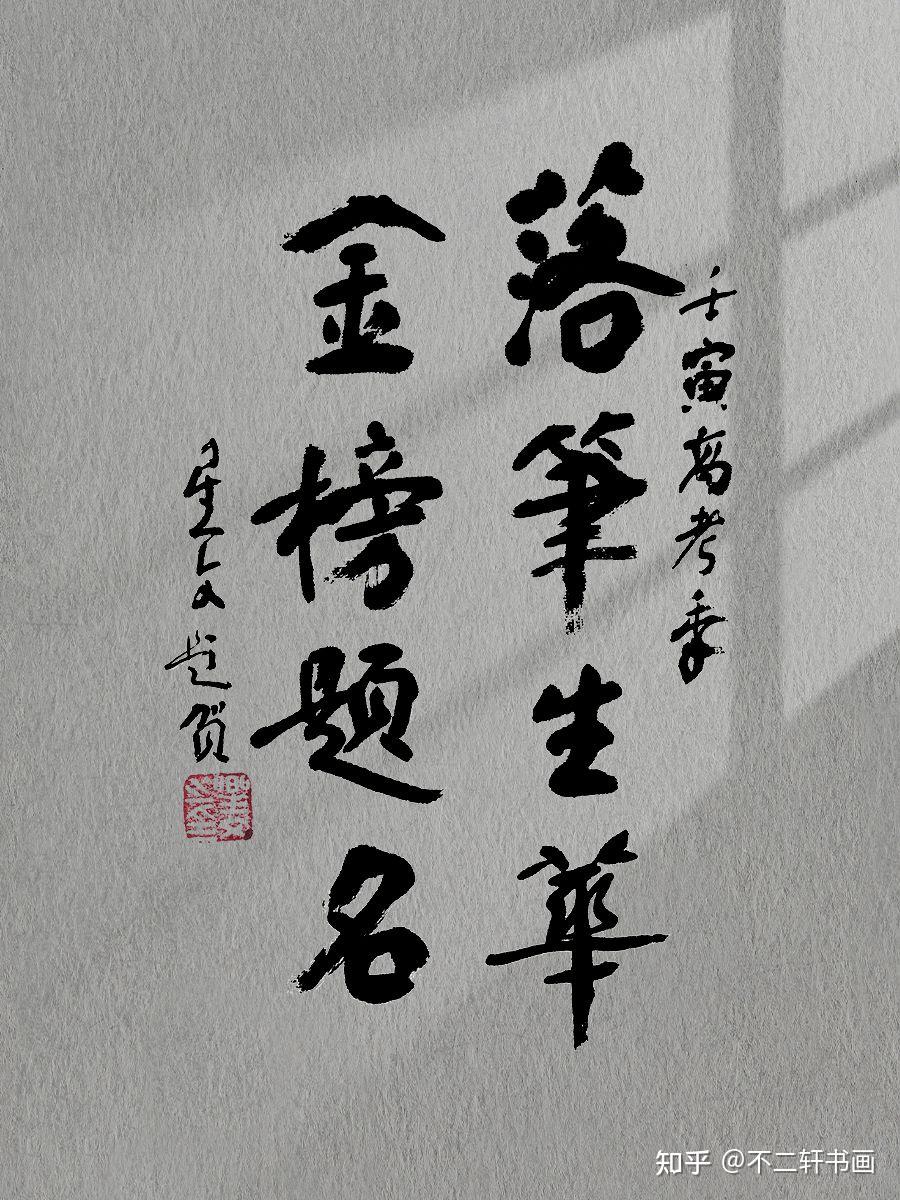 壬寅高考季
落筆生華
金榜題名
题贺
知乎 @不二轩书画